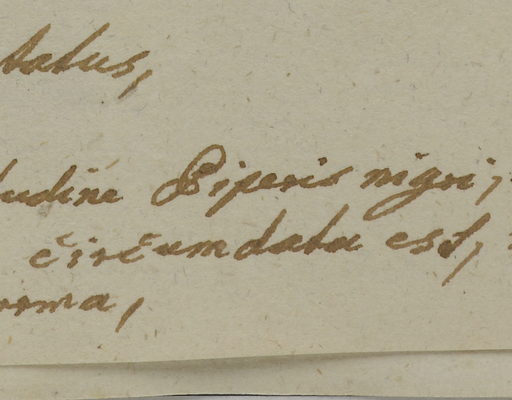 tatus,
tudine Piperis nigri,
circumdata est,
roma,